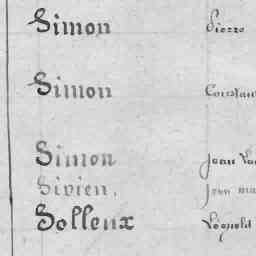 Simon Pierre
Simon Constan
Simon Jean
Sivien. Jean ma
Solleux Léopold